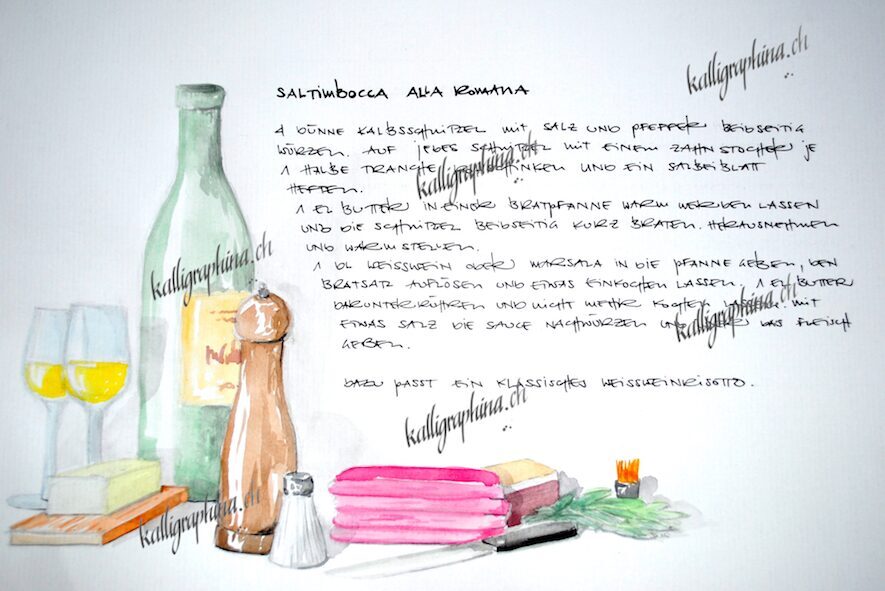 kalligraphina.ch
SALTIMBOCCA ALLA ROMANA
4 DÜNNE KALBSSCHNITZEL MIT SALZ UND PFEFFER BEIDSEITIG
WÜRZEN. AUF JEDES SCHNITZEL MIT EINEM ZAHNSTOCHER JE
1 HALBE TRANCHE SCHINKEN UND EIN SALBEIBLATT
HEFTEN.
kalligraphina.ch
1 EL BUTTER IN EINER BRATPFANNE WARM WERDEN LASSEN
UND DIE SCHNITZEL BEIDSEITIG KURZ BRATEN. HERAUSNEHMEN
UND WARM STELLEN.
kalligraphina.ch
1 DL WEISSWEIN ODER MARSALA IN DIE PFANNE GEBEN, DEN
BRATSATZ AUFLÖSEN UND ETWAS EINKOCHEN LASSEN. 1 EL BUTTER
DARUNTERRÜHREN UND NICHT MEHR KOCHEN LASSEN. MIT
ETWAS SALZ DIE SAUCE NACHWÜRZEN UND ÜBER DAS FLEISCH
GEBEN.
kalligraphina.ch
DAZU PASST EIN KLASSISCHES WEISSWEINRISOTTO.
kalligraphina.ch
kalligraphina.ch